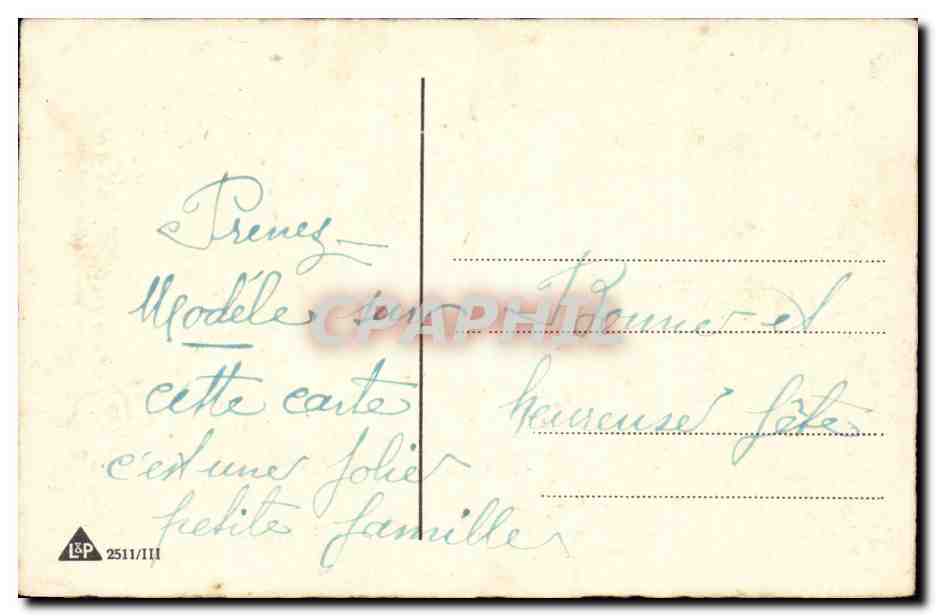 Prenez
Modèle sur
cette carte
c'est une jolie
petite famille
Bonne et
heureuse fête
CPAPHIL
L&P 2511/III